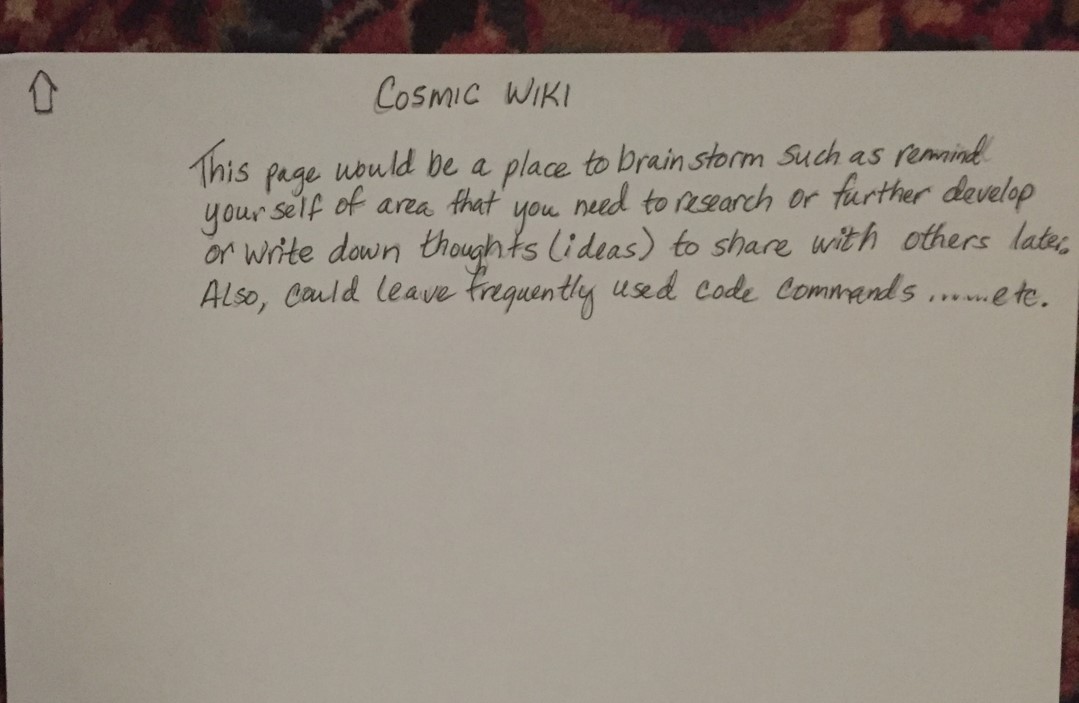 COSMIC WIKI
This page would be a place to brainstorm such as remind
yourself of area that you need to research or further develop
or write down thoughts (ideas) to share with others later.
Also, could leave frequently used code commands .......etc.